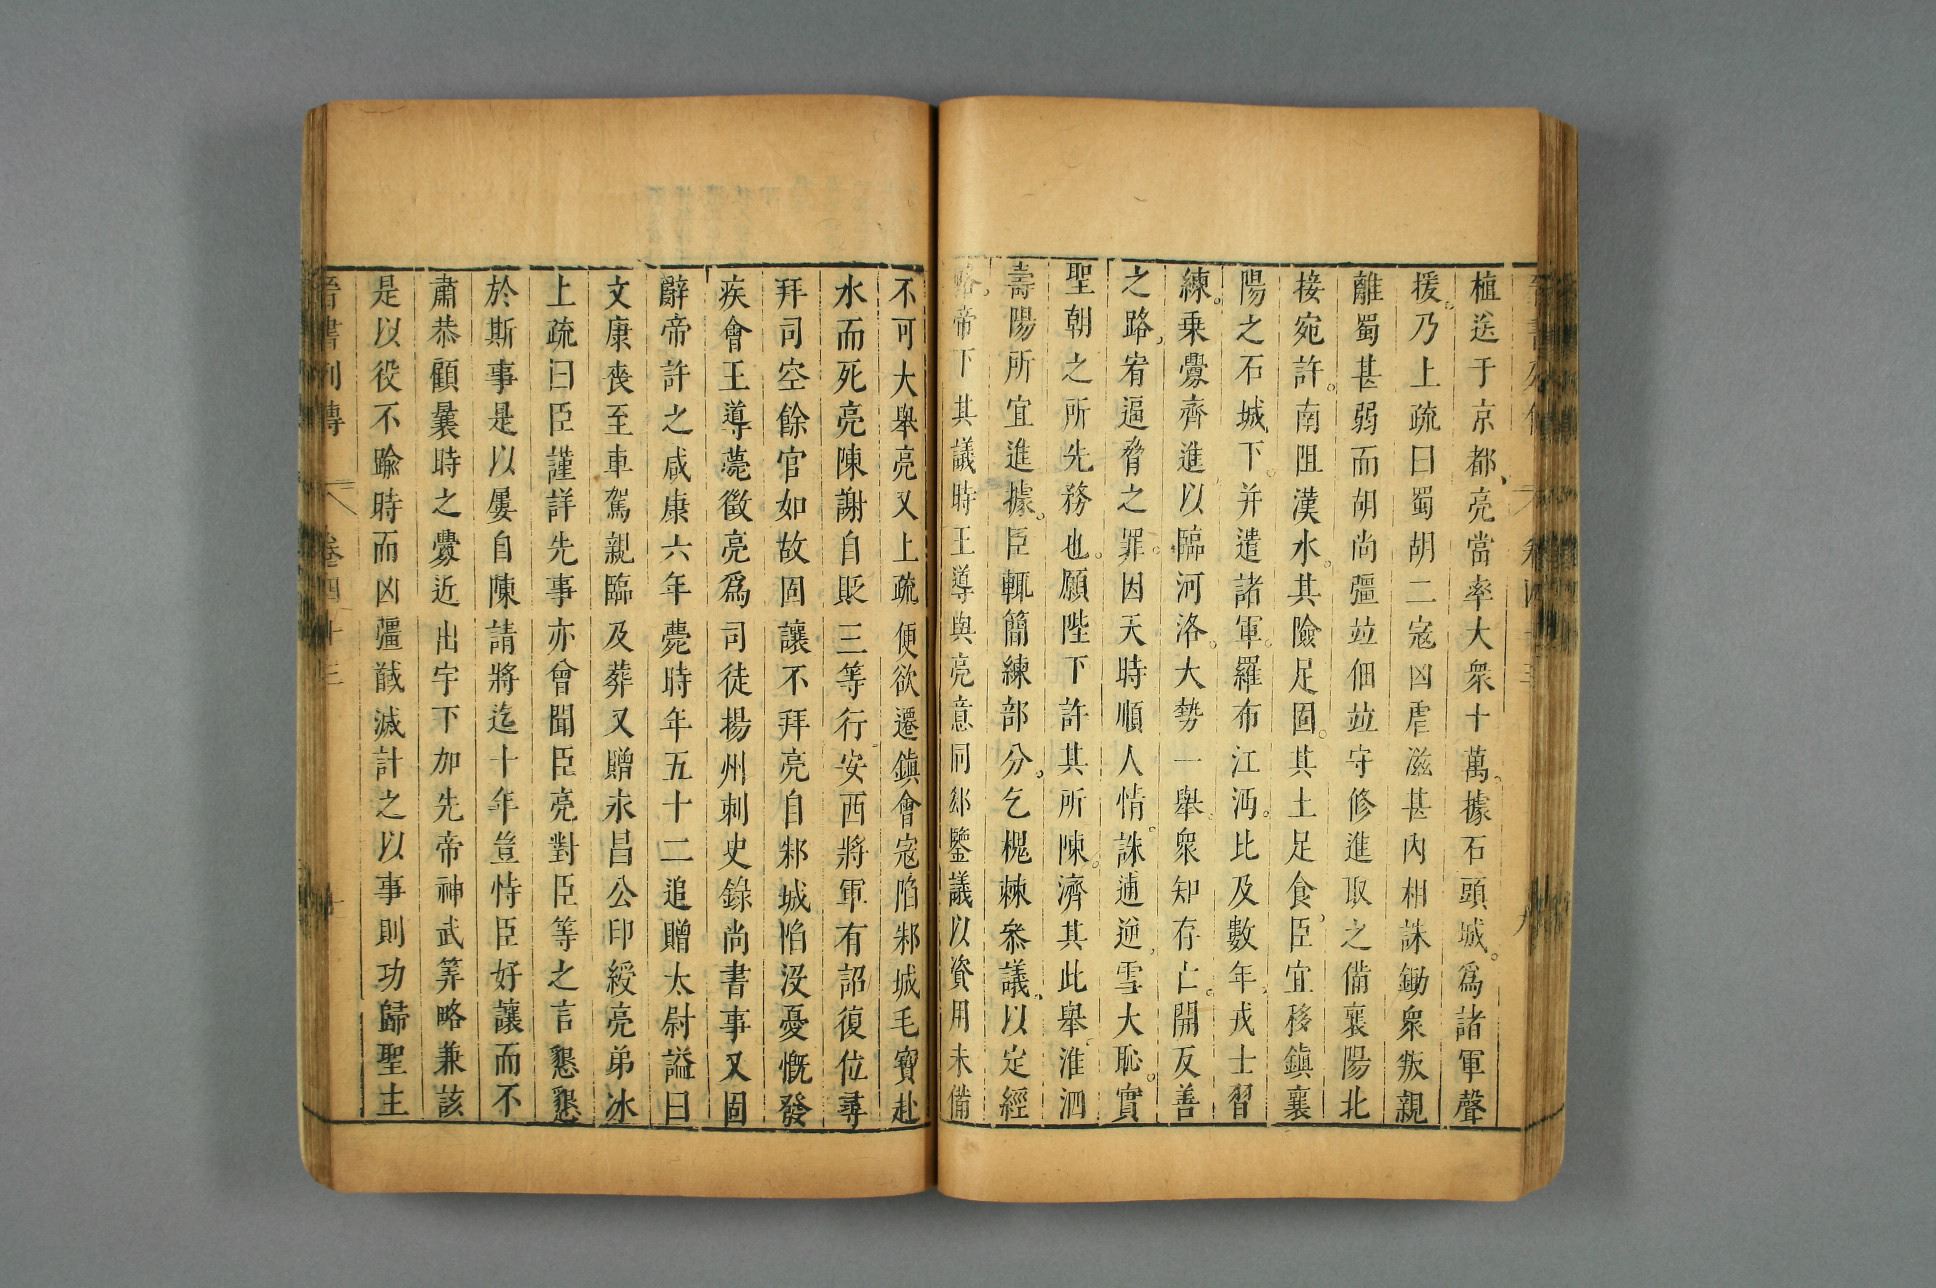 植送于京都亮當率大衆十萬據石頭城爲諸軍聲
援乃上疏曰蜀胡二寇凶虐滋甚内相誅鋤衆叛親
離蜀甚弱而胡尚彊竝佃竝守修進取之備襄陽北
接宛許南阻漢水其險足固其土足食臣宜移鎮襄
陽之石城下并遣諸軍羅布江沔比及數年戎士習
練乗釁齊進以臨河洛大勢一舉衆知存亡開反善
之路宥逼脅之罪因天時順人情誅逋逆雪大恥實
聖朝之所先務也願陛下許其所陳濟其此舉淮泗
壽陽所宜進據臣輒簡練部分乞槐棘叅議以定經
略帝下其議時王導與亮意同郄鑒議以資用未備
不可大舉亮又上疏便欲遷鎮會寇陷邾城毛寶赴
水而死亮陳謝自貶三等行安西將軍有詔復位尋
拜司空餘官如故固讓不拜亮自邾城陷没憂慨發
疾會王導薨徵亮爲司徒揚州刺史錄尚書事又固
辭帝許之咸康六年薨時年五十二追贈太尉謚曰
文康喪至車駕親臨及葬又贈永昌公印綬亮弟冰
上疏曰臣謹詳先事亦曾聞臣亮對臣等之言懇懇
於斯事是以屡自陳請將迄十年豈恃臣好讓而不
肅恭顧曩時之釁近出宇下加先帝神武筭略兼該
是以役不踰時而凶彊馘滅計之以事則功歸聖主
晉書列傳 卷四十三